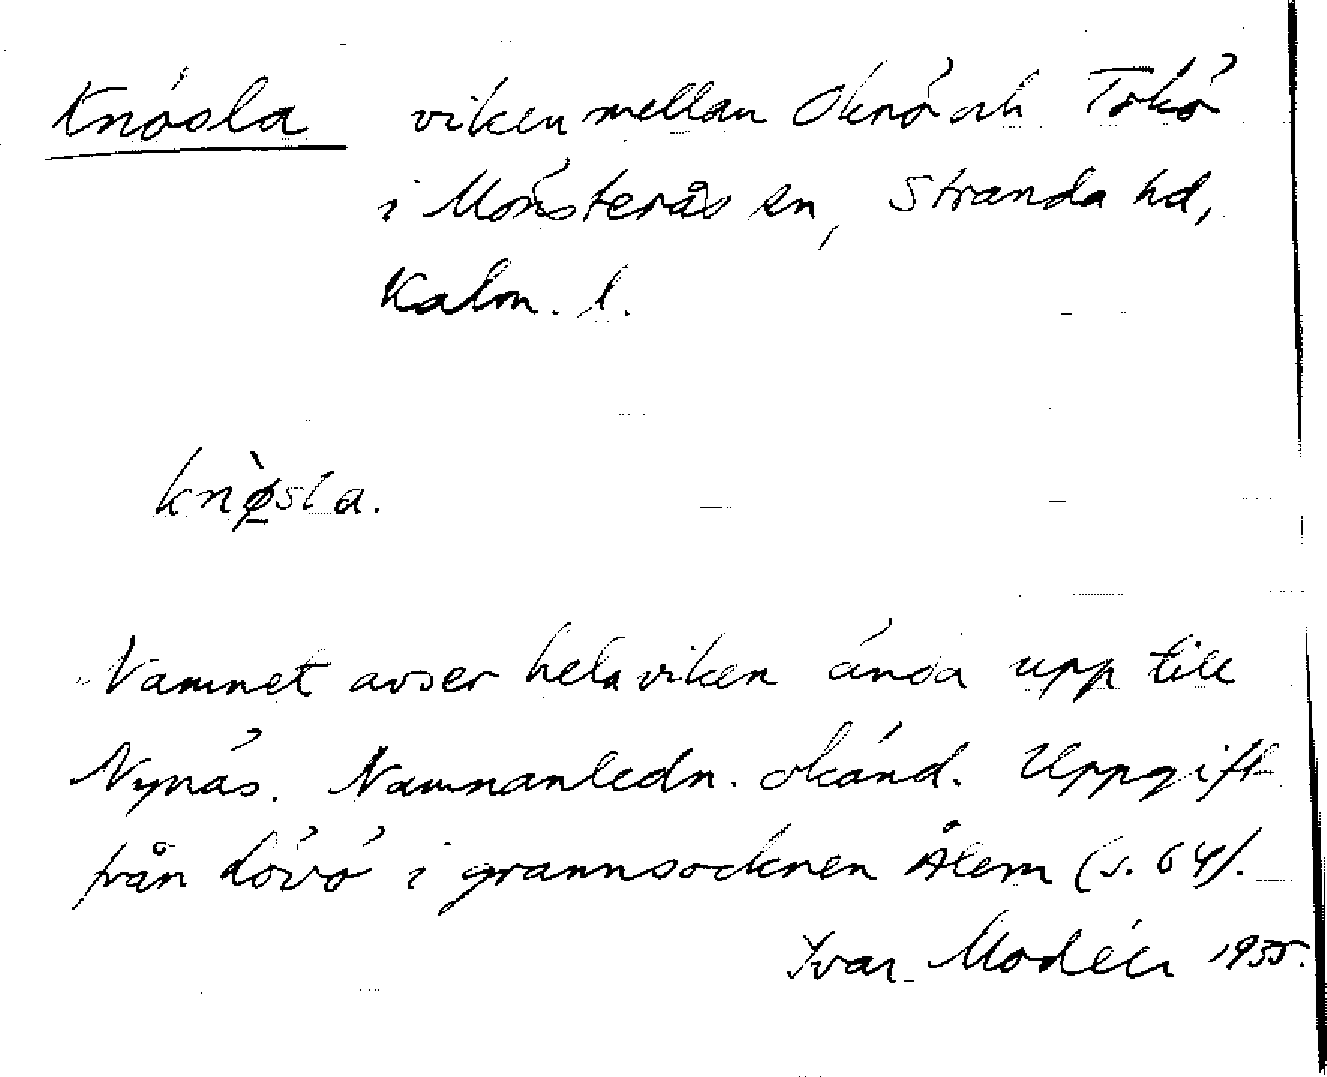 Knösla viken mellan Oknö och Tokö
i Mönsterås sn, Stranda hd,
Kalm. l.
knø̀sla.
Namnet avser hela viken ända upp till
Nynäs. Namnanledn. okänd. Uppgift
från Lövö i grannsocknen Ålem (s. 64).
Ivar Modéer 1935.